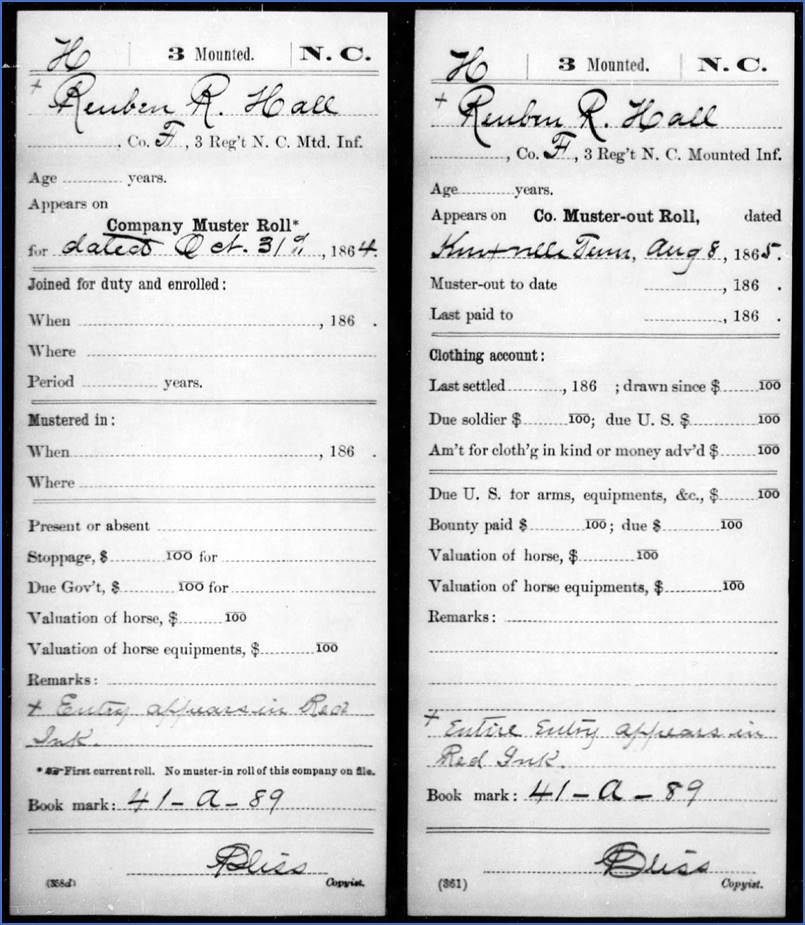 H | 3 Mounted. | N. C.
+ Reuben R. Hall
, Co. F, 3 Reg't N. C. Mtd. Inf.
Age years.
Appears on
Company Muster Roll*
for dated Oct. 31st, 1864.
Joined for duty and enrolled:
When , 186 .
Where
Period years.
Mustered in:
When , 186 .
Where
Present or absent
Stoppage, $ 100 for
Due Gov't, $ 100 for
Valuation of horse, $ 100
Valuation of horse equipments, $ 100
Remarks:
+ Entry appears in Red
Ink.
* First current roll. No muster-in roll of this company on file.
Book mark: 41-A-89
Bliss
(358d) Copyist.
H | 3 Mounted. | N. C.
+ Reuben R. Hall
, Co. F, 3 Reg't N. C. Mounted Inf.
Age years.
Appears on Co. Muster-out Roll, dated
Knoxville Tenn, Aug 8, 1865.
Muster-out to date , 186 .
Last paid to , 186 .
Clothing account:
Last settled , 186 ; drawn since $ 100
Due soldier $ 100; due U. S. $ 100
Am't for cloth'g in kind or money adv'd $ 100
Due U. S. for arms, equipments, &c., $ 100
Bounty paid $ 100; due $ 100
Valuation of horse, $ 100
Valuation of horse equipments, $ 100
Remarks:
+ Entire Entry appears in
Red Ink.
Book mark: 41-A-89
Bliss
(361) Copyist.